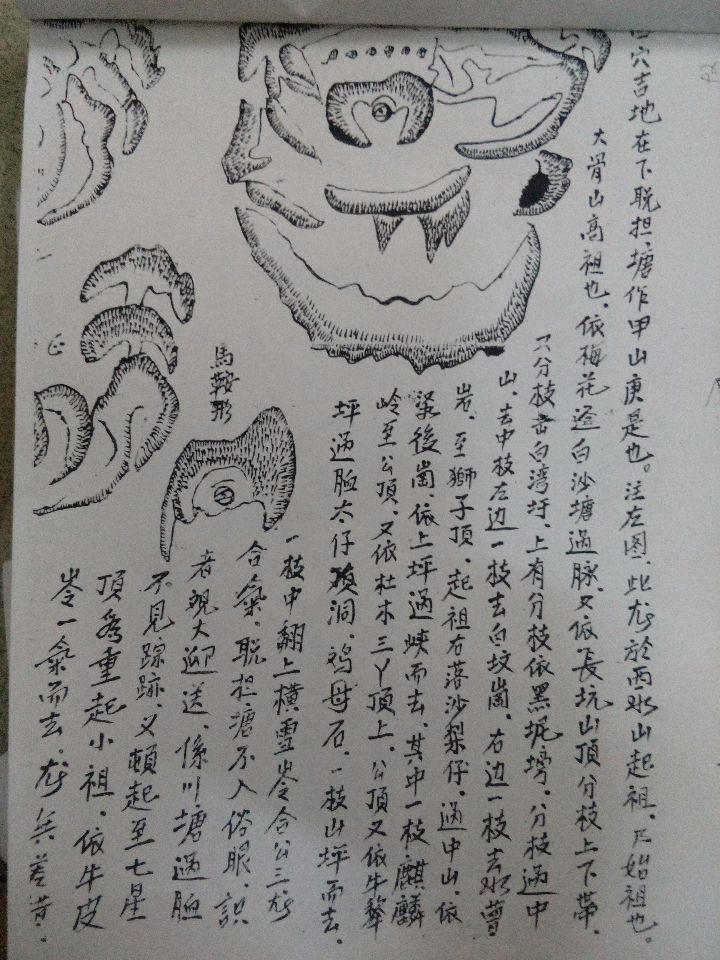 穴吉地在下脱担塘作甲山庚是也。注左图,此龙於西水山起祖,乃始祖也。
大骨山高祖也。依梅花迳白沙塘過脉,又依長坑山頂分枝上下帶,
只分枝击白湾圩,上有分枝依黑坭塝,分枝過中
山,去中枝左边一枝去白坟崗,右边一枝去水
岩,至獅子頂,起祖右落沙梨仔,過中山,依
後崗,依上坪過峽而去,其中一枝麒麟
岭至公頂,又依杜木三丫頂上,公頂又依牛
坪過脸太仔洞,鸡母石,一枝山坪而去,
一枝中翻上橫雪岺合公三龙
合氣,脱担塘不入俗眼,識
者觀大迎送,係川塘過脸
不見踪跡,又頓起至七星
頂為重起小祖,依牛皮
岺一氣而去,龙無差黄.
馬鞍形